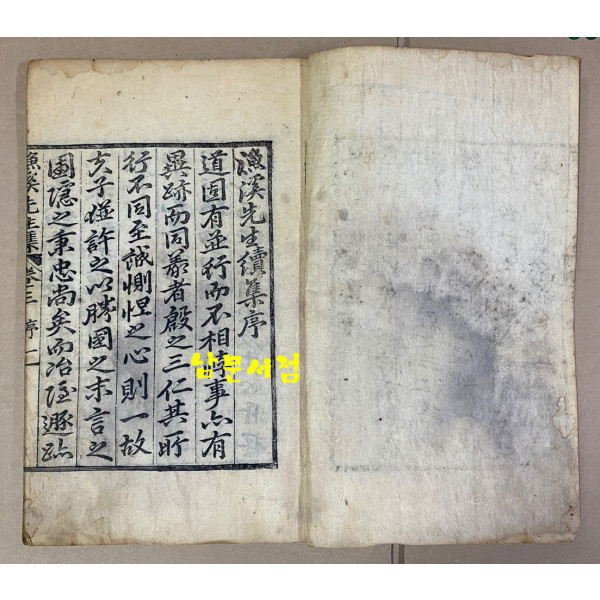 漁溪先生續集序
道固有並行而不相悖事亦有
異跡而同義者殷之三仁其所
行不同至誠惻怛之心則一故
夫子並許之以勝國之末言之
圃隱之秉忠尚矣而冶隱遯跡
漁溪先生集 卷之三 序 一
남문서점